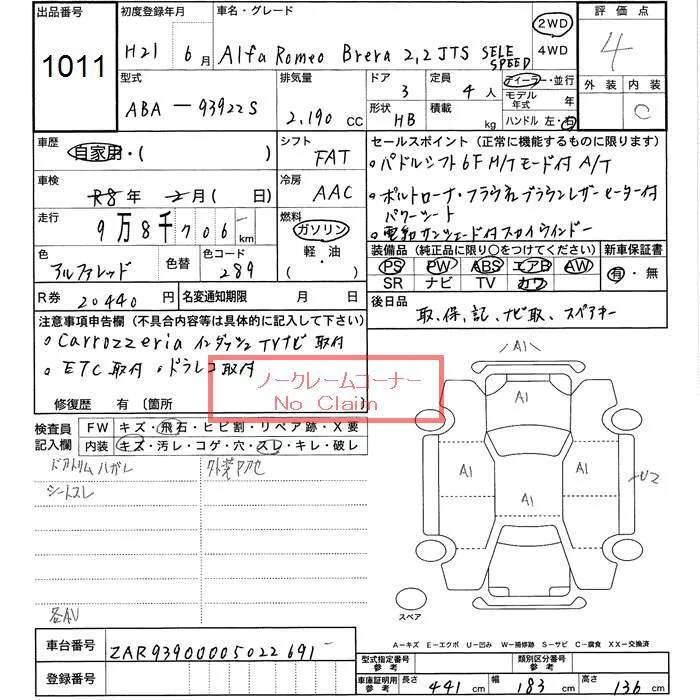 出品番号 初度登録年月 車名・グレード 評価点
1011 H21 6月 Alfa Romeo Brera 2.2 JTS SELE SPEED 2WD 4WD 4
型式 排気量 ドア 定員 ディーラー・並行 外装 内装
ABA-93922S 2.190 CC 3 4人 モデル年式 年 C
形状 HB 積載 kg ハンドル 左・右
車歴 自家用・( ) シフト FAT セールスポイント (正常に機能するものに限ります)
・パドルシフト 6F M/Tモード付 A/T
車検 R8年 2月( 日) 冷房 AAC ・ポルトローナ・フラウ社ブラウンレザーヒーター付
パワーシート
走行 9万8千706km 燃料 ガソリン ・電動サンシェード付スカイウインドー
軽・油
( )
色 アルファレッド 色替 色コード 289 装備品 (純正品に限り〇をつけてください) 新車保証書
PS PW ABS エアB AW 有・無
SR ナビ TV カワ
R券 20440円 名変通知期限 月 日 後日品
取、保、記、ナビ取、スペアキー
注意事項申告欄 (不具合内容等は具体的に記入して下さい)
・Carrozzeria インダッシュTVナビ取付
・ETC取付・ドラレコ取付
ノークレームコーナー
No Claim
修復歴 有 〔箇所 〕
検査員記入欄 FW キズ・飛石・ヒビ割・リペア跡・X要
内装 キズ・汚レ・コゲ・穴・スレ・キレ・破レ
ドアトリムハガレ
シートスレ
各AU
A1
A1
A1 A1 U2
A1
スペア
A-キズ E-エクボ U-凹み W-補修跡 S-サビ C-腐食 XX-交換済
車台番号 ZAR93900005022691
登録番号
型式指定番号 参考 類別区分番号 参考
車庫証明用 参考 長さ 441cm 幅 183cm 高さ 136cm